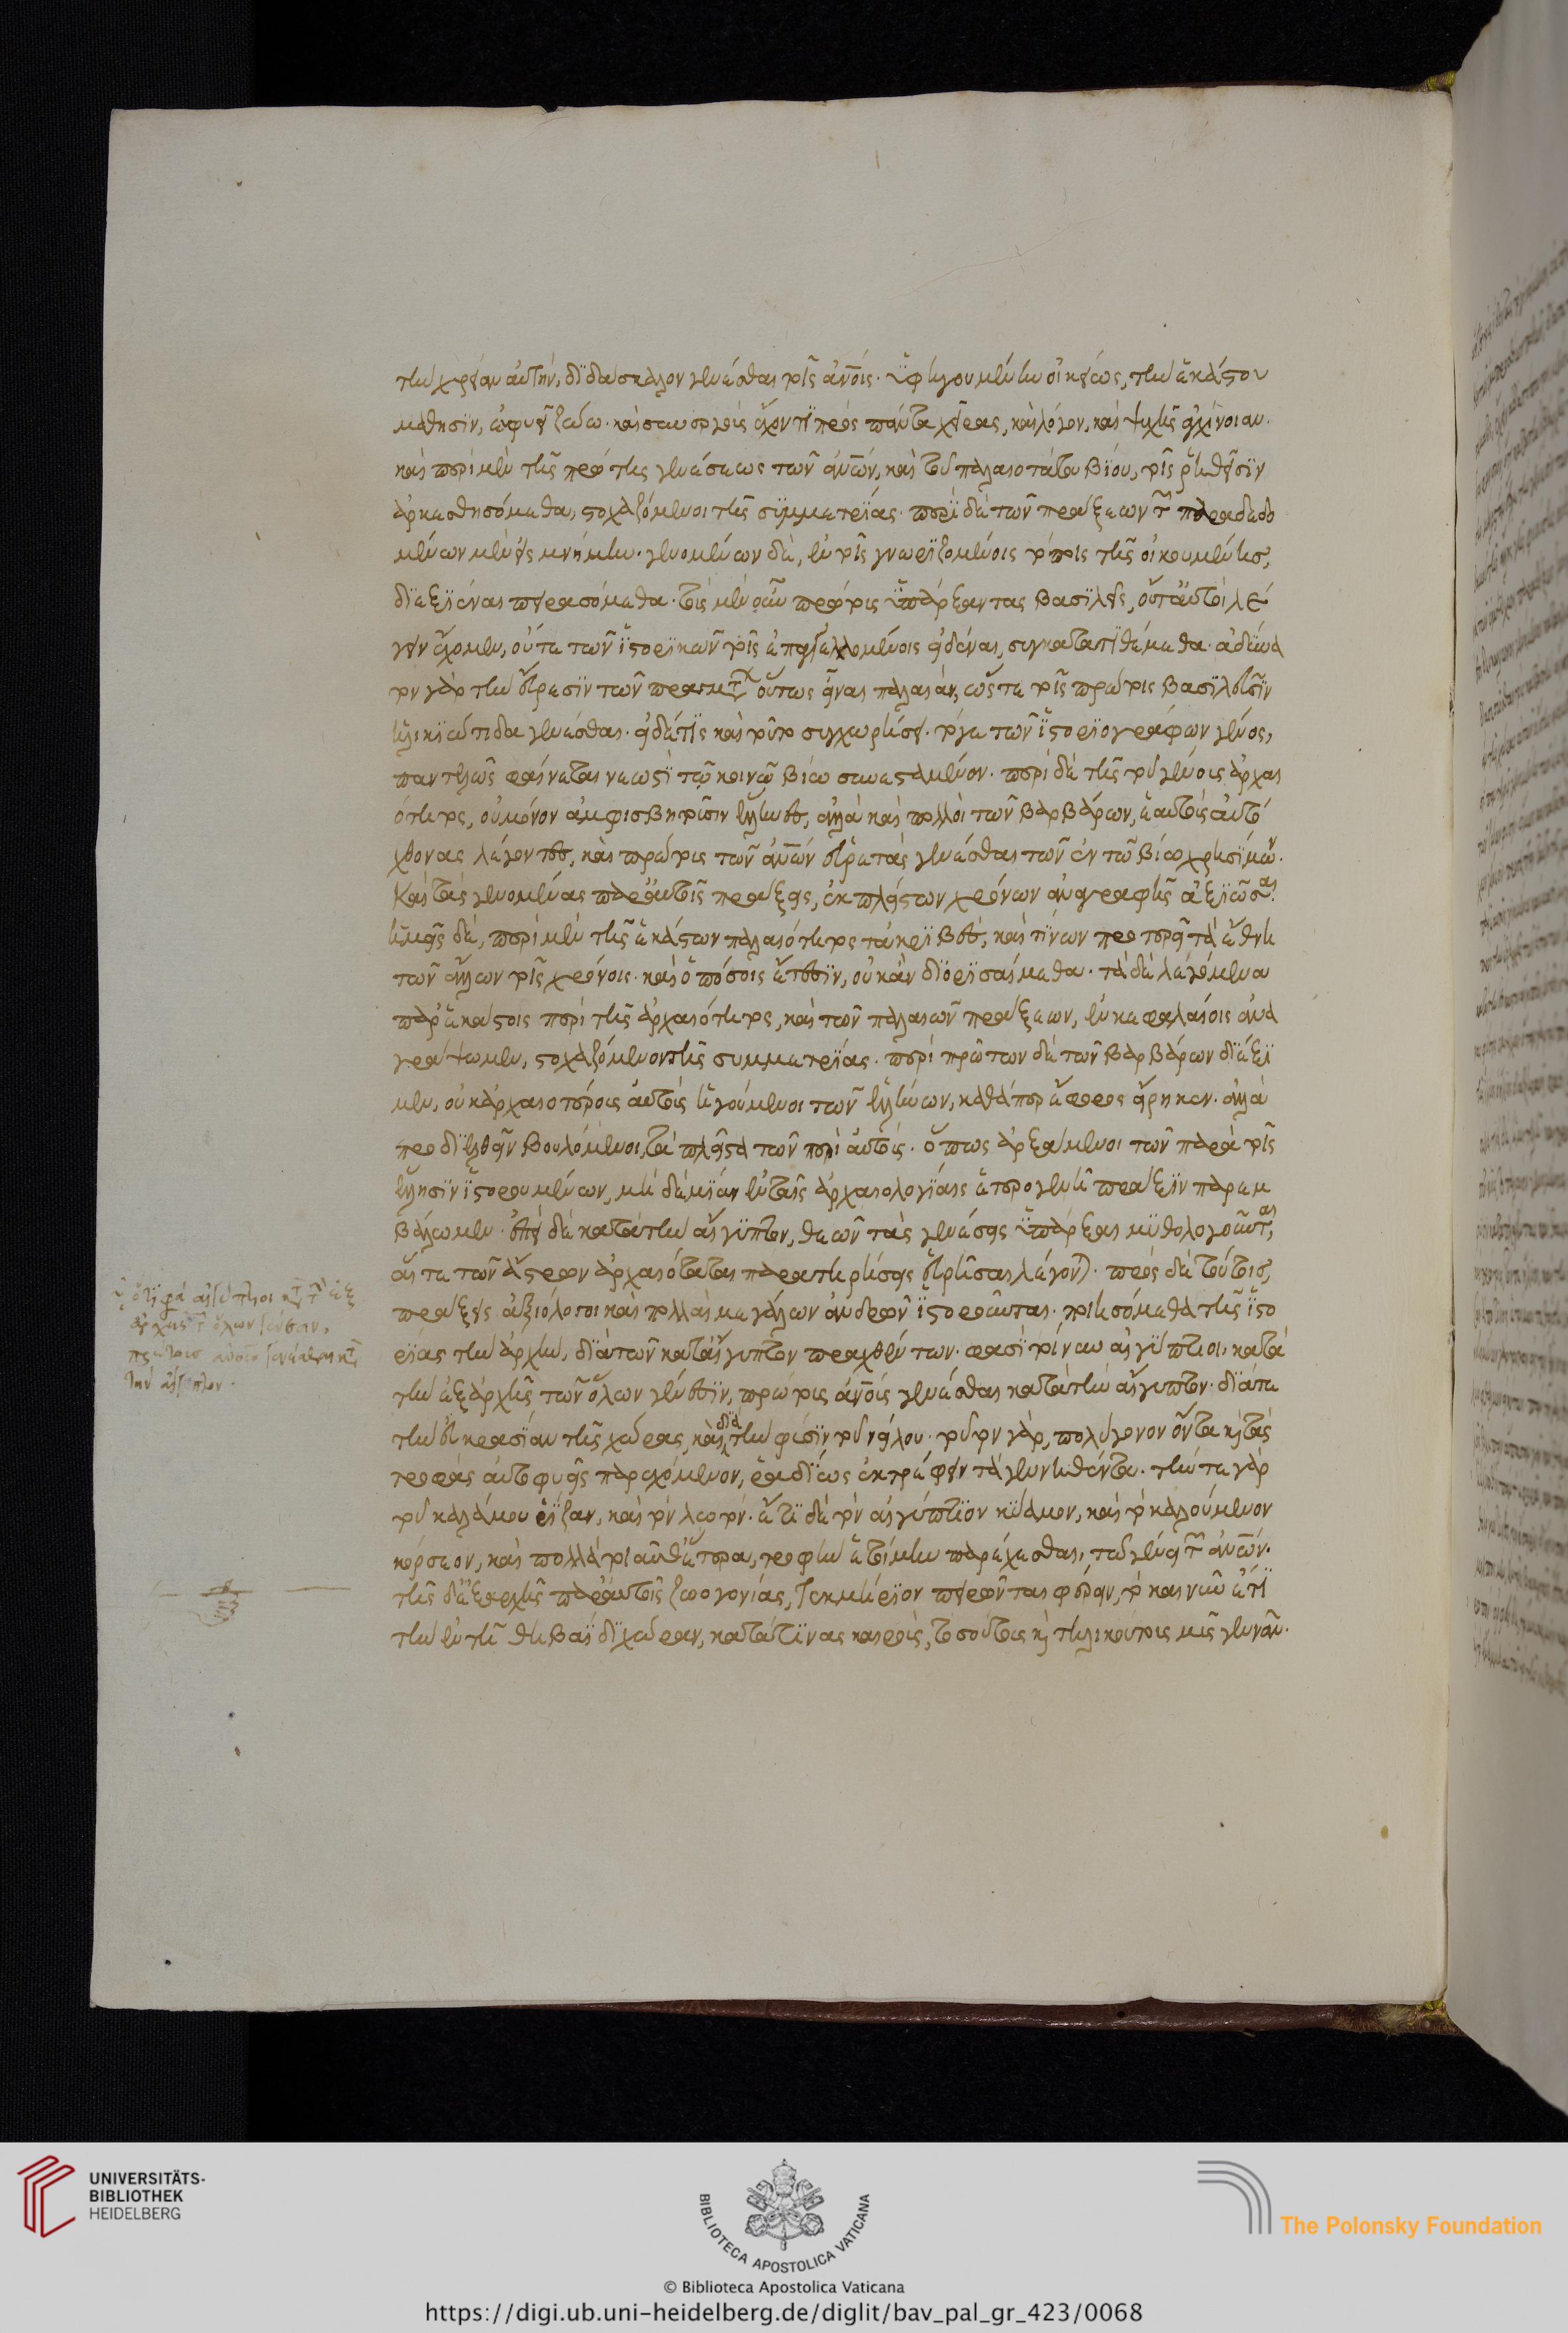 τὴν χρείαν αὐτὴν, διδάσκαλον γενέσθαι τοῖς ἀνοις. ὑφηγουμένην οἰκείως, τὴν ἑκάστου
μάθησιν, εὐφυεῖ ζώω. καὶ συνεργοὺς ἔχοντι πρὸς πάντα χεῖρας, καὶ λόγον, καὶ ψυχῆς ἀγχίνοιαν.
καὶ περὶ μὲν τῆς πρώτης γενέσεως τῶν ἀνων, καὶ τοῦ παλαιοτάτου βίου, τοῖς ῥηθεῖσιν
ἀρκεσθησόμεθα, στοχαζόμενοι τῆς συμμετρίας. περὶ δὲ τῶν πράξεων τῶν παραδεδο
μένων μὲν εἰς μνήμην. γενομένων δὲ, ἐν τοῖς γνωριζομένοις τόποις τῆς οἰκουμένης,
διεξιέναι πειρασόμεθα. τοὺς μὲν οὖν πρώτους ὑπάρξαντας βασιλεῖς, οὔτ' αὐτοὶ λέ
γειν ἔχομεν, οὔτε τῶν ἱστορικῶν τοῖς ἐπαγγελλομένοις εἰδέναι, συγκατατιθέμεθα. ἀδύνα
τον γὰρ τὴν εὕρεσιν τῶν γραμμάτων οὕτως εἶναι παλαιὰν, ὥστε τοῖς πρώτοις βασιλεῦσιν
ἡλικιώτιδα γενέσθαι. εἰ δέ τις καὶ τοῦτο συγχωρήσει. τό γε τῶν ἱστοριογράφων γένος,
παντελῶς φαίνεται νεωστὶ τῷ κοινῷ βίω συνεσταμένον. περὶ δὲ τῆς τοῦ γένους ἀρχαι
ότητος, οὐ μόνον ἀμφισβητοῦσιν ἕλληνες, ἀλλὰ καὶ πολλοὶ τῶν βαρβάρων, ἑαυτοὺς αὐτό
χθονας λέγοντες, καὶ πρώτους τῶν ἀνων εὑρετὰς γενέσθαι τῶν ἐν τῶ βίω χρησίμων.
καὶ τὰς γενομένας παρ' αὐτοῖς πράξεις, ἐκ πλείστων χρόνων ἀναγραφῆς ἀξιῶσαι.
ἡμεῖς δὲ, περὶ μὲν τῆς ἑκάστων παλαιότητος τἀκριβὲς, καὶ τίνων προτερεῖ τὰ ἔθνη
τῶν ἄλλων τοῖς χρόνοις. καὶ ὁπόσοις ἔτεσιν, οὐκ ἂν διορισαίμεθα. τὰ δὲ λεγόμενα
παρ' ἑκάστοις περὶ τῆς ἀρχαιότητος, καὶ τῶν παλαιῶν πράξεων, ἐν κεφαλαίοις ἀνα
γράψωμεν, στοχαζόμενοι τῆς συμμετρίας. περὶ πρώτων δὲ τῶν βαρβάρων διέξι
μεν, οὐκ ἀρχαιοτέρους αὐτοὺς ἡγούμενοι τῶν ἑλλήνων, καθάπερ ἔφορος εἴρηκεν. ἀλλὰ
προδιελθεῖν βουλόμενοι, τὰ πλεῖστα τῶν περὶ αὐτοὺς. ὅπως ἀρξάμενοι τῶν παρὰ τοῖς
ἕλλησιν ἱστορουμένων, μὴ δεμίαν ἐν ταῖς ἀρχαιολογίαις ἑτερογενῆ πρᾶξιν παρεμ
βάλωμεν. ἐπεὶ δὲ κατὰ τὴν αἴγυπτον, θεῶν τὰς γενέσεις ὑπάρξαι μυθολογοῦνται,
αἵ τε τῶν ἄστρων ἀρχαιόταται παρατηρήσεις εὑρῆσθαι λέγονται. πρὸς δὲ τούτοις,
πράξεις ἀξιόλογοι καὶ πολλαὶ μεγάλων ἀνδρῶν ἱστοροῦνται. ποιησόμεθα τῆς ἱστο
ρίας τὴν ἀρχὴν, διὰ τῶν κατ' αἴγυπτον πραχθέντων. φασὶ τοίνυν αἰγύπτιοι, κατὰ
τὴν ἐξ ἀρχῆς τῶν ὅλων γένεσιν, πρώτους ἀνους γενέσθαι κατὰ τὴν αἴγυπτον. διά τε
τὴν εὐκρασίαν τῆς χώρας, καὶ διὰ τὴν φύσιν τοῦ νείλου. τοῦτον γὰρ, πολύγονον ὄντα καὶ τὰς
τροφὰς αὐτοφυεῖς παρεχόμενον, ῥαδίως ἐκτρέφειν τὰ γεννηθέντα. τήν τε γὰρ
τοῦ καλάμου ῥίζαν, καὶ τὸν λωτὸν. ἔτι δὲ τὸν αἰγύπτιον κύαμον, καὶ τὸ καλούμενον
κόρσεον, καὶ πολλὰ τοιαῦθ' ἕτερα, τροφὴν ἑτοίμην παρέχεσθαι, τῶ γένει τῶν ἀνων.
τῆς δ' ἐξαρχῆς παρ' αὐτοῖς ζωογονίας, τεκμήριον πειρῶνται φέρειν, τὸ καὶ νῦν ἔτι
τὴν ἐν τῆ θηβαΐδι χώραν, κατά τινας καιροὺς, τοσούτους καὶ τηλικούτους μῦς γεννᾶν.
ὅτι φασὶ αἰγύπτιοι κατὰ τὴν ἐξ
ἀρχῆς τῶν ὅλων γένεσιν,
πρώτους ἀνους γενέσθαι κατὰ
τὴν αἴγυπτον.
UNIVERSITÄTS-
BIBLIOTHEK
HEIDELBERG
BIBLIOTECA APOSTOLICA VATICANA
The Polonsky Foundation
© Biblioteca Apostolica Vaticana
https://digi.ub.uni-heidelberg.de/diglit/bav_pal_gr_423/0068